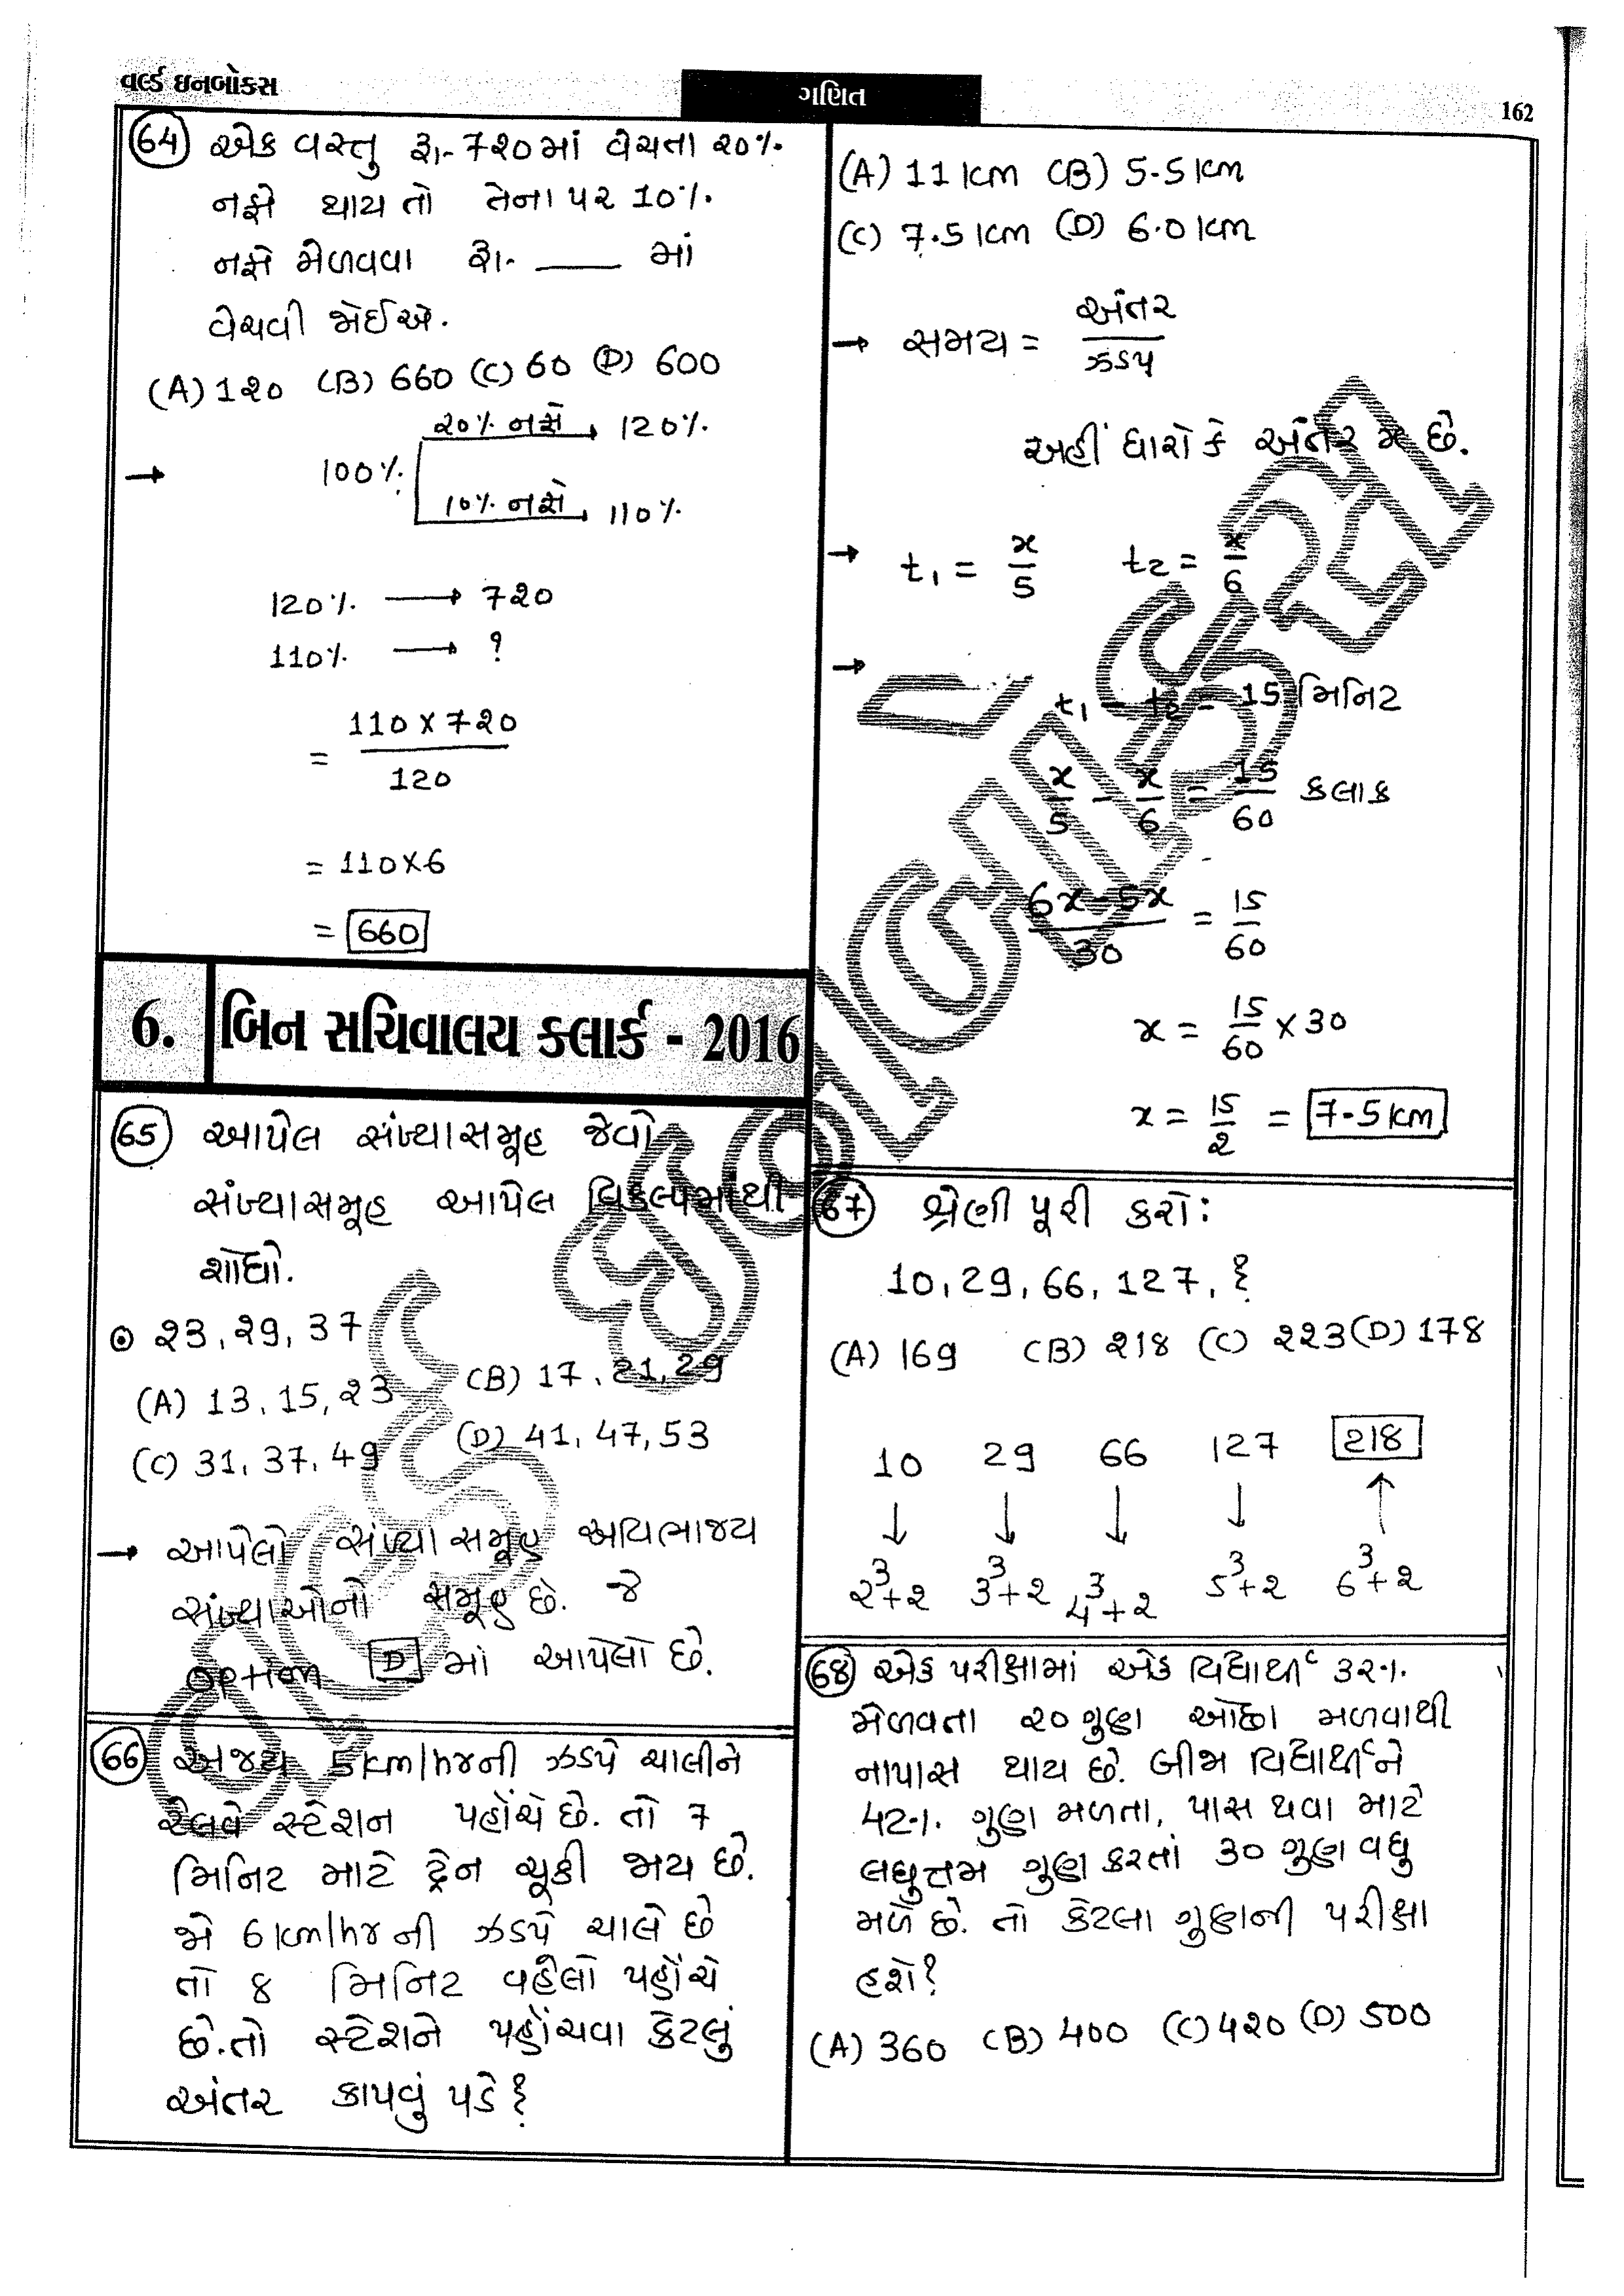 વર્લ્ડ ઇનબોક્સ
ગણિત
162
64 એક વસ્તુ રૂા.- 720માં વેચતા 20%
નફો થાય તો તેના પર 10%
નફો મેળવવા રૂા.- ____ માં
વેચવી જોઈએ.
(A) 120 (B) 660 (C) 60 (D) 600
→ 100% 20% નફો → 120%
10% નફો → 110%
120% → 720
110% → ?
= 110 × 720 / 120
= 110×6
= 660
6. બિન સચિવાલય ક્લાર્ક - 2016
65 આપેલ સંખ્યાસમૂહ જેવો
સંખ્યાસમૂહ આપેલ વિકલ્પમાંથી
શોધો.
⊙ 23, 29, 37
(A) 13, 15, 23 (B) 17, 21, 29
(C) 31, 37, 49 (D) 41, 47, 53
→ આપેલો સંખ્યા સમૂહ અવિભાજ્ય
સંખ્યાઓનો સમૂહ છે. જે
option D માં આપેલો છે.
66 અજય 5 km/hrની ઝડપે ચાલીને
રેલવે સ્ટેશન પહોંચે છે. તો 7
મિનિટ માટે ટ્રેન ચૂકી જાય છે.
જો 6 km/hr ની ઝડપે ચાલે છે
તો 8 મિનિટ વહેલો પહોંચે
છે. તો સ્ટેશને પહોંચવા કેટલું
અંતર કાપવું પડે?
(A) 11 km (B) 5.5 km
(C) 7.5 km (D) 6.0 km
→ સમય = અંતર / ઝડપ
અહીં ધારો કે અંતર x છે.
→ t₁ = x/5 t₂ = x/6
→ t₁ - t₂ = 15 મિનિટ
x/5 - x/6 = 15/60 કલાક
6x-5x / 30 = 15/60
x = 15/60 × 30
x = 15/2 = 7.5 km
67 શ્રેણી પૂરી કરો:
10, 29, 66, 127, ?
(A) 169 (B) 218 (C) 223 (D) 178
10 29 66 127 218
↓ ↓ ↓ ↓ ↑
2³+2 3³+2 4³+2 5³+2 6³+2
68 એક પરીક્ષામાં એક વિદ્યાર્થી 32%
મેળવતા 20 ગુણ ઓછા મળવાથી
નાપાસ થાય છે. બીજા વિદ્યાર્થીને
42% ગુણ મળતા, પાસ થવા માટે
લઘુત્તમ ગુણ કરતાં 30 ગુણ વધુ
મળે છે. તો કેટલા ગુણની પરીક્ષા
હશે?
(A) 360 (B) 400 (C) 420 (D) 500